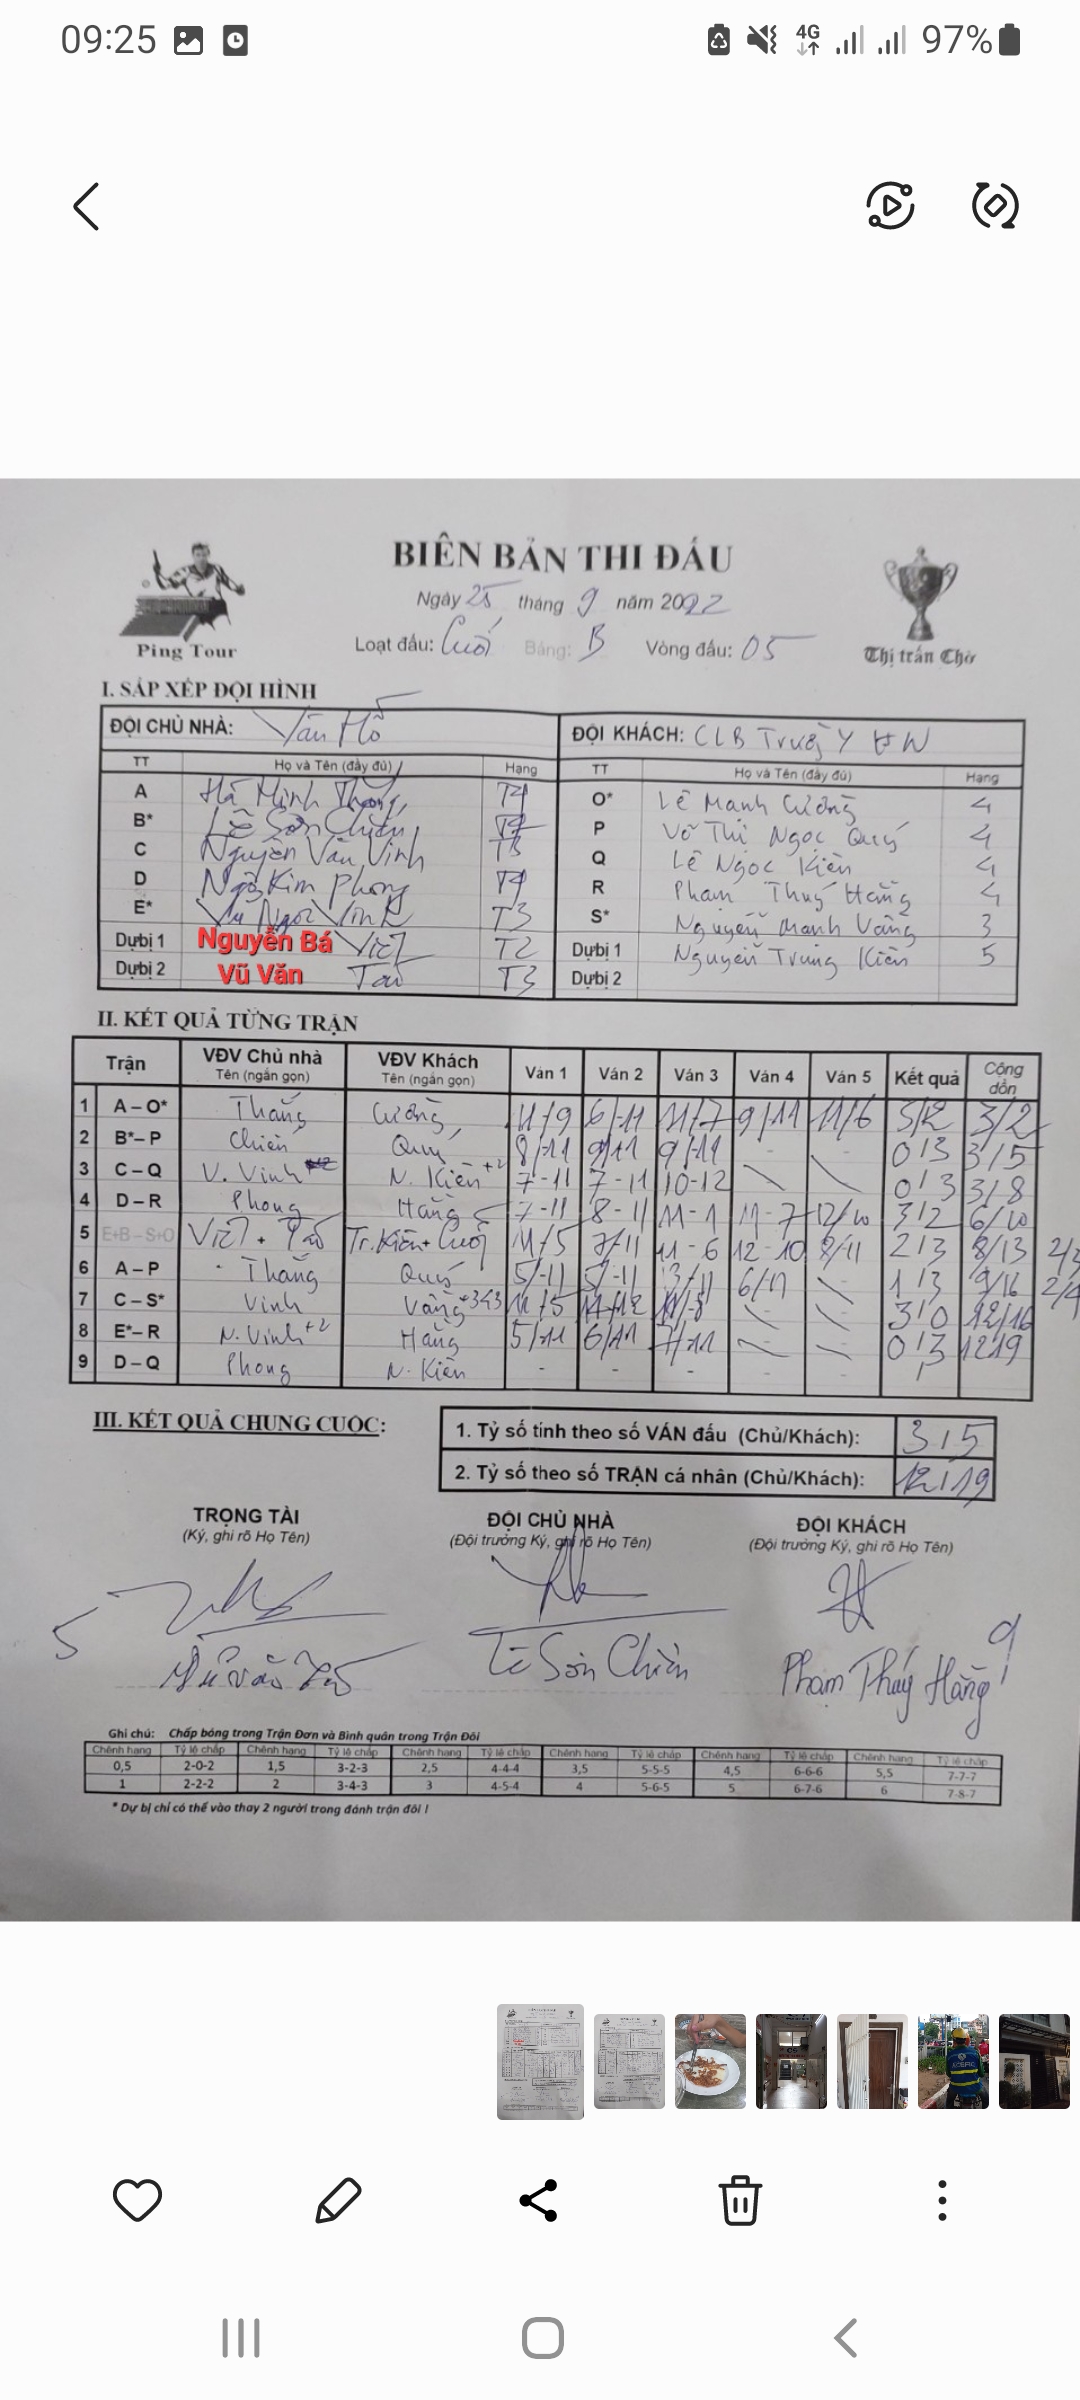 09:25 4G 97%
BIÊN BẢN THI ĐẤU
Ngày 25 tháng 9 năm 2022
Ping Tour
Loạt đấu: Cuối Bảng: B Vòng đấu: 05
Thị trấn Chờ
I. SẮP XẾP ĐỘI HÌNH
ĐỘI CHỦ NHÀ: Vân Hồ ĐỘI KHÁCH: CLB Trường Y HN
TT Họ và Tên (đầy đủ) Hạng TT Họ và Tên (đầy đủ) Hạng
A Hà Minh Thắng T4 O* Lê Mạnh Cường 4
B* Lê Sơn Chiến P Võ Thị Ngọc Quý 4
C Nguyễn Văn Vinh T3 Q Lê Ngọc Kiên 4
D Ngô Kim Phong T4 R Phạm Thuý Hằng 4
E* Vũ Ngọc Vinh T3 S* Nguyễn Mạnh Vàng 3
Dựbị 1 Nguyễn Bá Việt T2 Dựbị 1 Nguyễn Trung Kiên 5
Dựbị 2 Vũ Văn T3 Dựbị 2
II. KẾT QUẢ TỪNG TRẬN
Trận VĐV Chủ nhà VĐV Khách Ván 1 Ván 2 Ván 3 Ván 4 Ván 5 Kết quả Cộng dồn
Tên (ngắn gọn) Tên (ngắn gọn)
1 A – O* Thắng Cường 11/9 6/-11 11/7 9/11 11/6 3/2 3/2
2 B*– P Chiến Quý 8/-11 9/11 9/-11 - - 0/3 3/5
3 C – Q V. Vinh N. Kiên+2 7-11 7-11 10-12 0/3 3/8
4 D – R Phong Hằng 7-11 8-11 11-1 11-7 12/10 3/2 6/10
5 E+B – S+O Việt + Tr.Kiên+ Cường 11/5 7/11 11-6 12-10 8/11 2/3 8/13
6 A – P Thắng Quý 5/-11 5/-11 13/11 6/11 1/3 9/16
7 C – S* Vinh Vàng+343 11/5 14/12 11/-8 3/0 12/16
8 E*– R N. Vinh+2 Hằng 5/11 6/11 7/11 0/3 12/19
9 D – Q Phong N. Kiên - - - - - /
III. KẾT QUẢ CHUNG CUỘC:
1. Tỷ số tính theo số VÁN đấu (Chủ/Khách): 3/5
2. Tỷ số theo số TRẬN cá nhân (Chủ/Khách): 12/19
TRỌNG TÀI ĐỘI CHỦ NHÀ ĐỘI KHÁCH
(Ký, ghi rõ Họ Tên) (Đội trưởng Ký, ghi rõ Họ Tên) (Đội trưởng Ký, ghi rõ Họ Tên)
5 9
Lê Sơn Chiến Phạm Thúy Hằng
Ghi chú: Chấp bóng trong Trận Đơn và Bình quân trong Trận Đôi
Chênh hạng Tỷ lệ chấp Chênh hạng Tỷ lệ chấp Chênh hạng Tỷ lệ chấp Chênh hạng Tỷ lệ chấp Chênh hạng Tỷ lệ chấp Chênh hạng Tỷ lệ chấp
0,5 2-0-2 1,5 3-2-3 2,5 4-4-4 3,5 5-5-5 4,5 6-6-6 5,5 7-7-7
1 2-2-2 2 3-4-3 3 4-5-4 4 5-6-5 5 6-7-6 6 7-8-7
* Dự bị chỉ có thể vào thay 2 người trong đánh trận đôi !